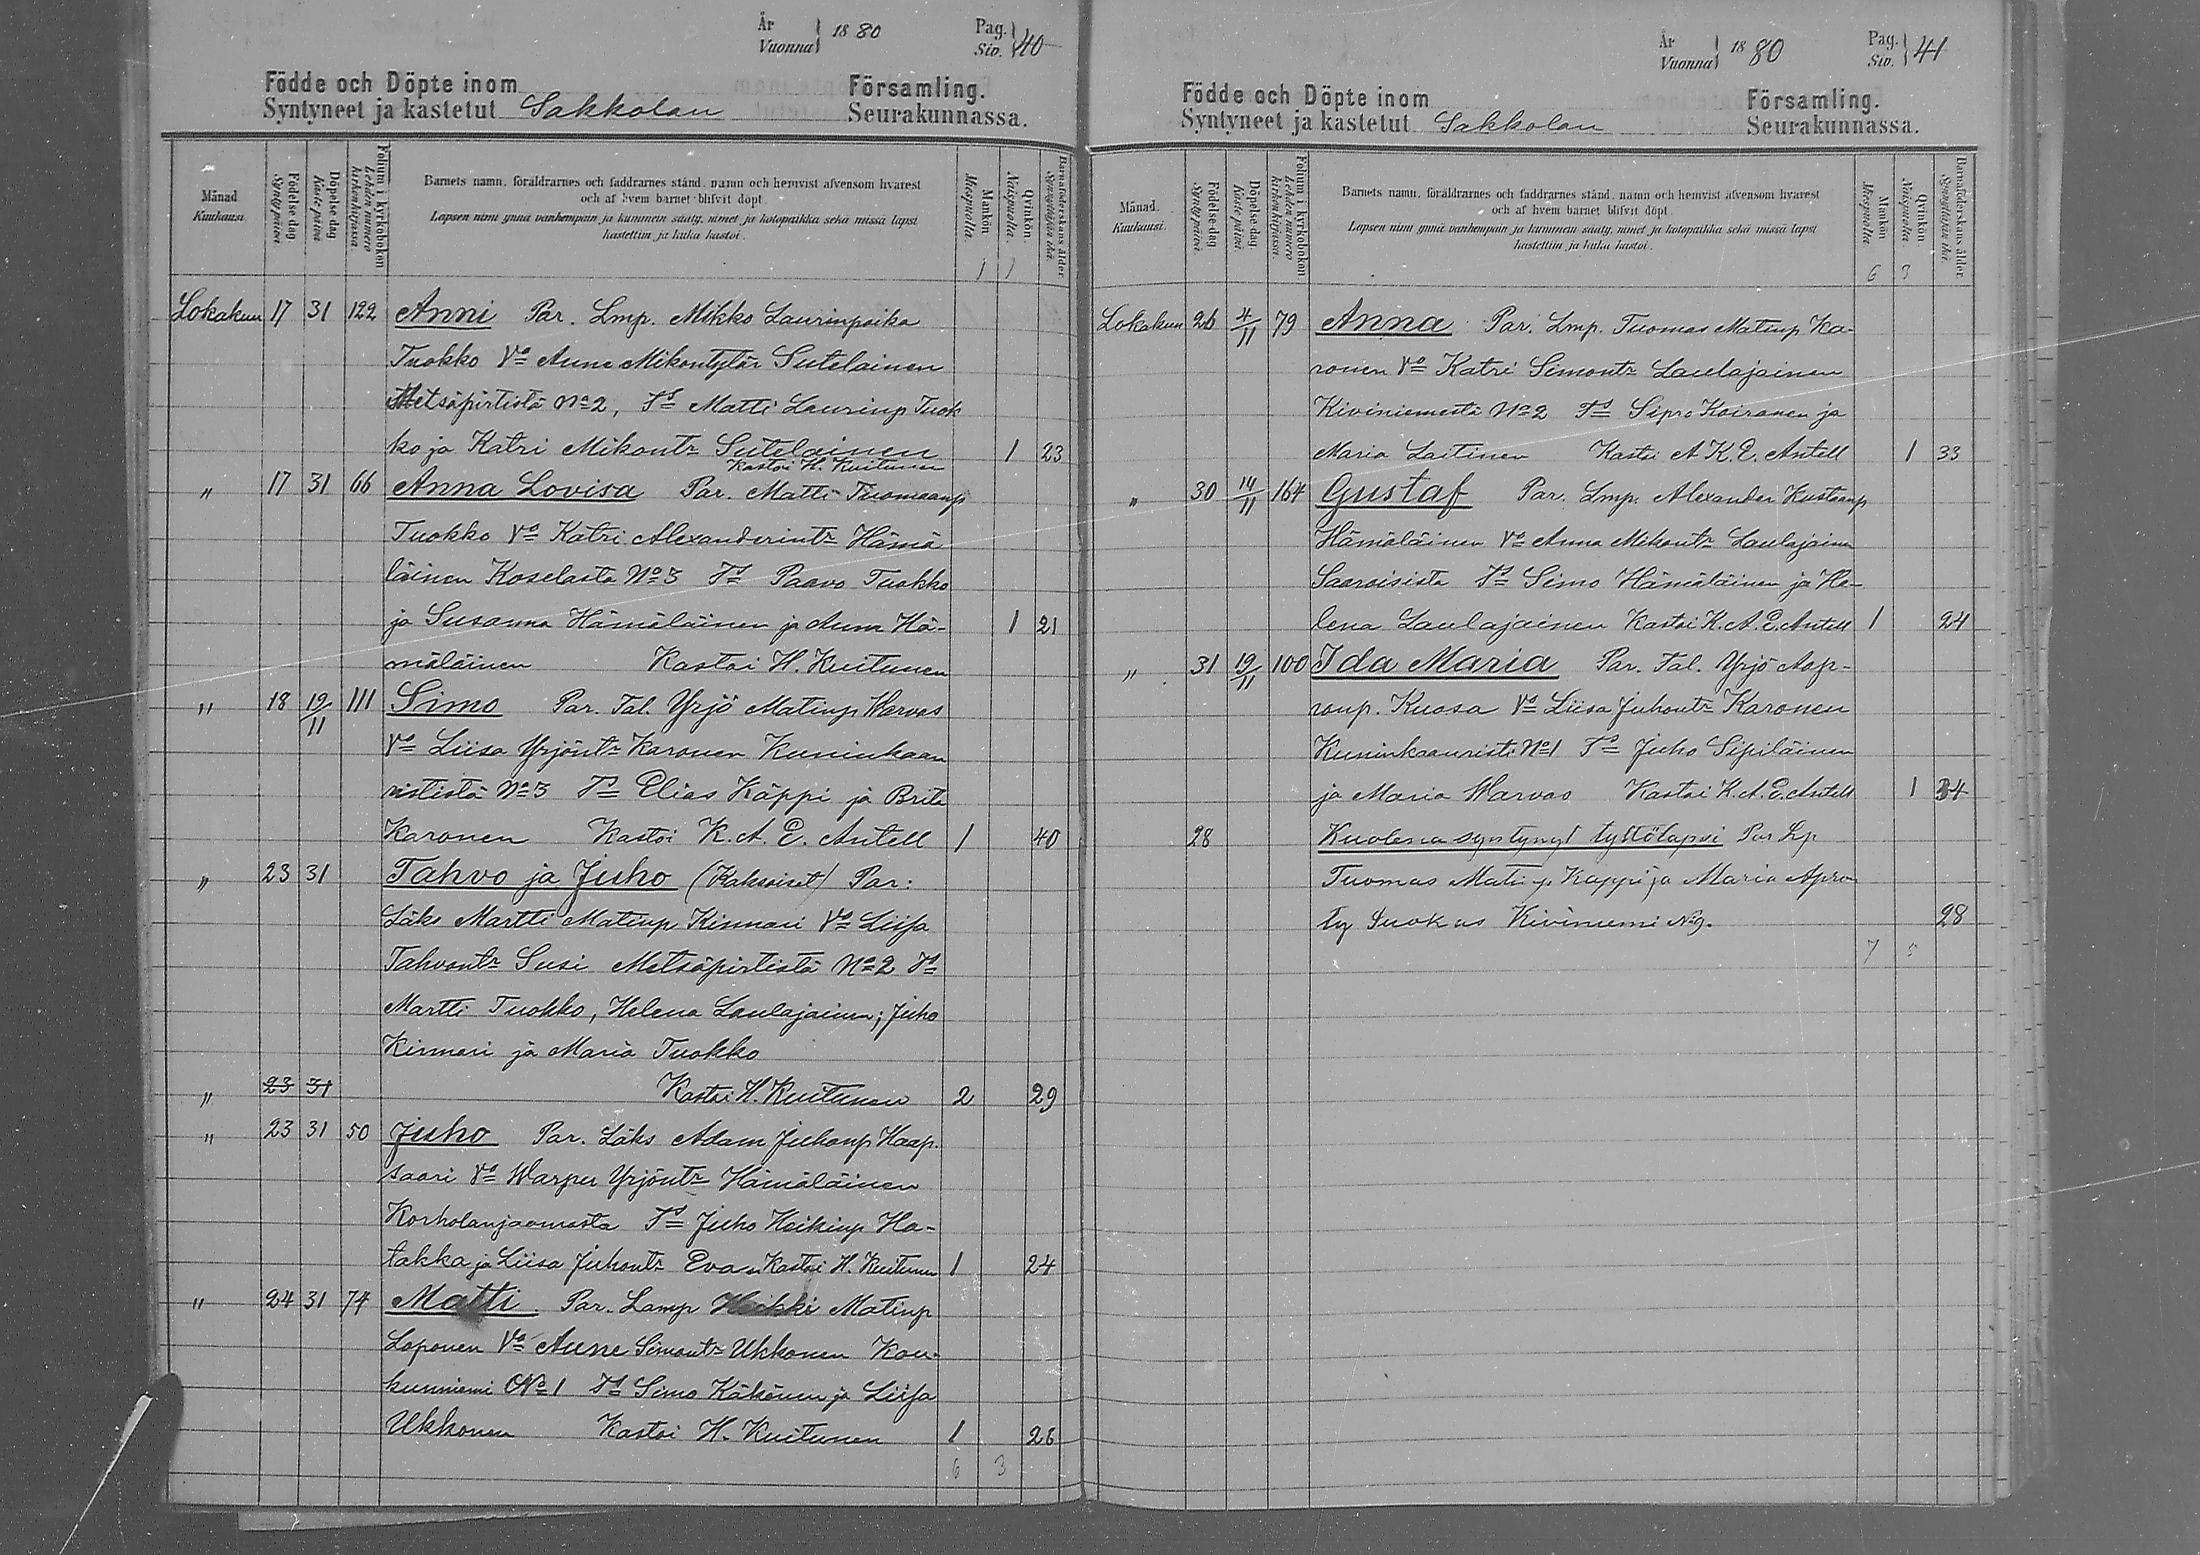 År Vuonna 1880 Pag. Siv. 40
Födde och Döpte inom Församling.
Syntyneet ja kastetut Sakkolan Seurakunnassa.
Månad. Kuukausi.
Födelse-dag Syntypäivä.
Döpelse-dag Kastepäivä.
Folium i kyrkoboken Lehden numero kirkonkirjassa.
Barnets namn, föräldrarnes och faddrarnes stånd, namn och hemvist äfvensom hvarest
och af hvem barnet blifvit döpt.
Lapsen nimi ynnä vanhempain ja kummein sääty, nimet ja kotopaikka sekä missä lapsi
kastettiin ja kuka kastoi.
Mankön Miespuolia.
Qvinkön. Naispuolia.
Barnaföderskans ålder. Synnyttäjän ikä.
1 1
Lokakuu 17 31 122 Anni Par. Lmp. Mikko Laurinpoika
Tuokko Vo Anna Mikontytär Sutelainen
Metsäpirtistä No 2, Td Matti Laurinp Tuok
ko ja Katri Mikontr Sutelainen 1 23
Kastoi H. Kuitunen
" 17 31 66 Anna Lovisa Par. Matti Tuomaanp
Tuokko Vo Katri Alexanderintr Hämä
läinen Koselasta No 3 Td Paavo Tuokko
ja Susanna Hämäläinen ja Anna Hä- 1 21
mäläinen Kastoi H. Kuitunen
" 18 19/11 111 Simo Par. Tal. Yrjö Matinp Warvas
Vo Liisa Yrjöntr Karonen Kuninkaan
rististä No 3 Td Elias Käppi ja Brita
Karonen Kastoi K. A. E. Antell 1 40
" 23 31 Tahvo ja Juho (Kaksoiset) Par:
Läks Martti Matinp Kinnari Vo Liisa
Tahvontr Susi Metsäpirtistä No 2 Td
Martti Tuokko, Helena Laulajainen; Juho
Kinnari ja Maria Tuokko
" 23 31 Kastoi H. Kuitunen 2 29
" 23 31 50 Juho Par. Läks Adam Juhonp Haap.
saari Vo Warpu Yrjöntr Hämäläinen
Korholanjaamasta Td Juho Heikinp Ha-
takka ja Liisa Juhontr Eva Kastoi H. Kuitunen 1 24
" 24 31 74 Matti. Par. Lamp Heikki Matinp
Loponen Vo Anne Simontr Ukkonen Kou-
kunniemi No 1 Td Simo Käkönen ja Liisa
Ukkonen Kastoi H. Kuitunen 1 26
6 3
År Vuonna 1880 Pag. Siv. 41
Födde och Döpte inom Församling.
Syntyneet ja kastetut Sakkolan Seurakunnassa.
Månad. Kuukausi.
Födelse-dag Syntypäivä.
Döpelse-dag Kastepäivä.
Folium i kyrkoboken Lehden numero kirkonkirjassa.
Barnets namn, föräldrarnes och faddrarnes stånd, namn och hemvist äfvensom hvarest
och af hvem barnet blifvit döpt.
Lapsen nimi ynnä vanhempain ja kummein sääty, nimet ja kotopaikka sekä missä lapsi
kastettiin ja kuka kastoi.
Mankön Miespuolia.
Qvinkön Naispuolia
Barnaföderskans ålder. Synnyttäjän ikä.
6 3
Lokakuu 26 4/11 79 Anna Par. Lmp. Tuomas Matinp Ka-
ronen Vo Katri Simontr Laulajainen
Kiviniemestä No 2 Td Sipro Koiranen ja
Maria Laitinen Kastoi A K. E. Antell 1 33
" 30 14/11 164 Gustaf Par. Lmp. Alexander Kustaanp
Hämäläinen Vo Anna Mikontr Laulajainen
Saaroisista Td Simo Hämäläinen ja He-
lena Laulajainen Kastoi K. A. E. Antell 1 24
" 31 19/11 100 Ida Maria Par. Tal. Yrjö Aap-
ronp. Kuosa Vo Liisa Juhontr Karonen
Kuninkaanristi No 1 Td Juho Sipiläinen
ja Maria Warvas Kastoi K. A. E. Antell 1 34
28 Kuolena syntynyt tyttölapsi Par Lp
Tuomas Matinp Kappi ja Maria Apron
ty Kiviniemi No 9. 28
7 5